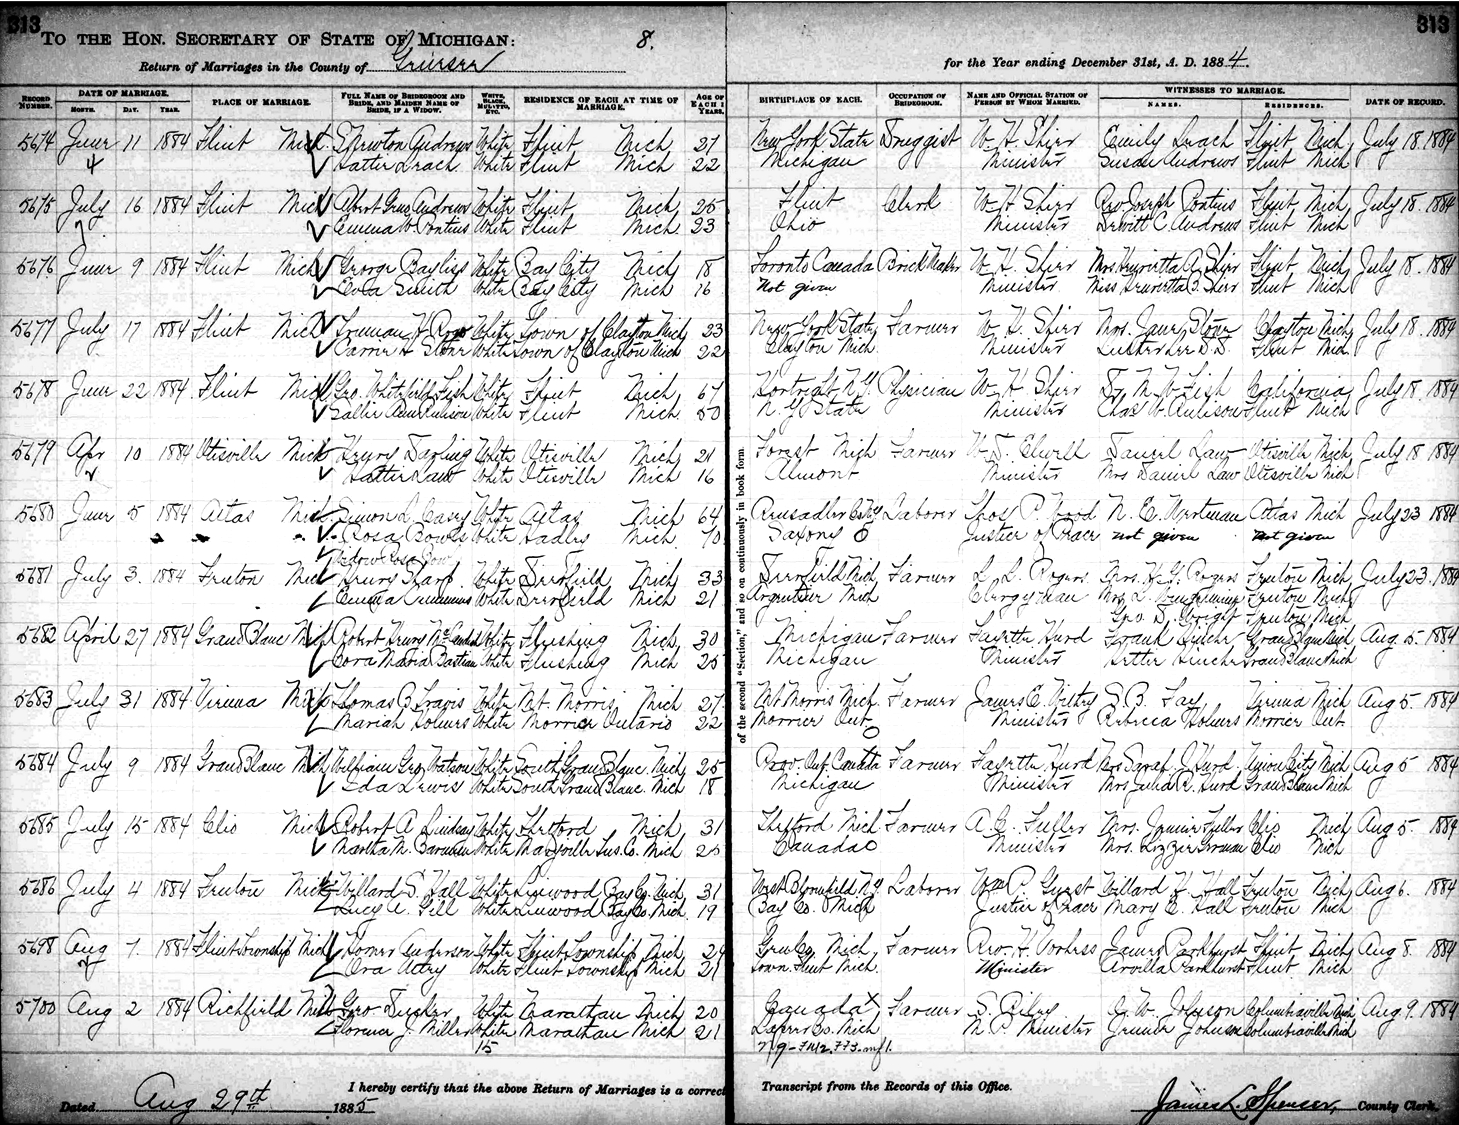 313
313
TO THE HON. SECRETARY OF STATE OF MICHIGAN:
8.
Return of Marriages in the County of Genesee
for the Year ending December 31st, A. D. 1884.
RECORD NUMBER.
DATE OF MARRIAGE.
MONTH. DAY. YEAR.
PLACE OF MARRIAGE.
FULL NAME OF BRIDEGROOM AND BRIDE, AND MAIDEN NAME OF BRIDE, IF A WIDOW.
WHITE, BLACK, MULATTO, ETC.
RESIDENCE OF EACH AT TIME OF MARRIAGE.
AGE OF EACH IN YEARS.
BIRTHPLACE OF EACH.
OCCUPATION OF BRIDEGROOM.
NAME AND OFFICIAL STATION OF PERSON BY WHOM MARRIED.
WITNESSES TO MARRIAGE.
NAMES. RESIDENCES.
DATE OF RECORD.
5674 June 11 1884 Flint Mich. S Newton Andrews White Flint Mich 27 New York State Druggist W. H. Shier Emily Leach Flint Mich July 18. 1884
4 Hattie Leach White Flint Mich 22 Michigan Minister Susan Andrews Flint Mich
5675 July 16 1884 Flint Mich Andrews White Flint Mich 25 Flint Clerk W H Shier Rev Joseph Pontius Flint Mich July 18. 1884
Emma W Pontius White Flint Mich 23 Ohio Minister Dewitt C Andrews Flint Mich
5676 June 9 1884 Flint Mich George Bayliss White Bay City Mich 18 Toronto Canada Brick Maker W. H. Shier Mrs Henrietta A Shier Flint Mich July 18. 1884
Smith White Bay City Mich 16 Not given Minister Miss Shier Flint Mich
5677 July 17 1884 Flint Mich Truman H White Town of Clayton Mich 23 New York State Farmer W. H. Shier Mrs. Jane Stone Clayton Mich July 18. 1884
Carrie A Stone White Town of Clayton Mich 22 Clayton Mich Minister Flint Mich
5678 June 22 1884 Flint Mich Geo. Whitefield Fish White Flint Mich 67 Kortright N.Y. Physician W. H. Shier Fish California July 18. 1884
Sallie Ann White Flint Mich 50 N. Y. State Minister Chas W. Flint Mich
5679 Apr 10 1884 Otisville Mich Henry Darling White Otisville Mich 21 Forest Mich Farmer Daniel Law Otisville Mich July 18 1884
Hattie Law White Otisville Mich 16 Almont Minister Mrs Daniel Law Otisville Mich
5680 June 5 1884 Atlas Mich. Simon L. Casey White Atlas Mich 64 Laborer Thos P. Wood N. E. Atlas Mich July 23 1884
Rosa White Hadley Mich 70 Saxony Justice of Peace not given not given
Widow Rosa
5681 July 3 1884 Fenton Mich Henry Tharp White Deerfield Mich 33 Deerfield Mich Farmer L. L. Rogers Mrs. Rogers Fenton Mich July 23. 1884
Emma Cummins White Deerfield Mich 21 Argentine Mich Clergyman Fenton Mich
Geo. D. Wright Fenton Mich
5682 April 27 1884 Grand Blanc Mich Robert Henry White Flushing Mich 30 Michigan Farmer Fayette Hurd Frank Grand Blanc Mich Aug. 5. 1884
Cora Maria Bastian White Flushing Mich 25 Michigan Minister Grand Blanc Mich
5683 July 31 1884 Vienna Mich Thomas B Travis White Mt. Morris Mich 27 Mt Morris Mich. Farmer James E. S. B. Vienna Mich Aug 5. 1884
Mariah Holmes White Ontario 22 Ont Minister Rebecca Holmes Ont
5684 July 9 1884 Grand Blanc Mich William Geo. Watson White South Grand Blanc Mich 25 Prov. Ont. Canada Farmer Fayette Hurd Mrs Sarah J Hurd Union City Mich Aug 5 1884
Eda Lewis White South Grand Blanc Mich 18 Michigan Minister Mrs Julia R. Hurd Grand Blanc Mich
5685 July 15 1884 Clio Mich Robert A Lindsay White Thetford Mich 31 Thetford Mich Farmer A. C. Fuller Mrs. Jennie Fuller Clio Mich Aug 5. 1884
Martha N. White Maryville Tus. Co. Mich 25 Canada Minister Mrs. Lizzie Clio Mich
5686 July 4 1884 Fenton Mich Willard S. Hall White Linwood Bay Co. Mich 31 West Bloomfield N.Y. Laborer Wm P. Guest Willard H. Hall Fenton Mich Aug 6. 1884
Lucy A. Gill White Linwood Bay Co. Mich 19 Bay Co. Mich Justice of Peace Mary E. Hall Fenton Mich
5698 Aug 7. 1884 Flint Township Mich Homer Anderson White Flint Township Mich 24 Gen Co. Mich Farmer Rev. H. Vorhess James Parkhurst Flint Mich Aug 8. 1884
Ora White Flint Township Mich 21 Town Flint Mich. Minister Arvilla Parkhurst Flint Mich
5700 Aug 2 1884 Richfield Mich Geo White Marathan Mich 20 Canada Farmer S. Riley C. W. Johnson Columbiaville Mich Aug 9. 1884
Florence J. Miller White Marathan Mich 21 Lapeer Co. Mich M. P. Minister Jennie Johnson Columbiaville Mich
15
of the second "Section," and so on continuously in book form.
I hereby certify that the above Return of Marriages is a correct Transcript from the Records of this Office.
Dated Aug 29th 1885
James L. Spencer, County Clerk.